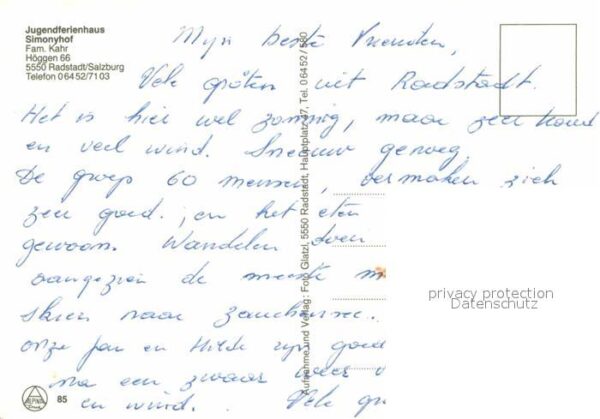 Jugendferienhaus
Simonyhof
Fam. Kahr
Höggen 66
5550 Radstadt/Salzburg
Telefon 06452/7103
Mijn beste Vrienden,
Vele groeten uit Radstadt.
Het is hier wel zonnig, maar zeer koud
en veel wind. Sneeuw genoeg.
De groep 60 mensen, vermaken zich
zeer goed. en het eten
gewoon. Wandelen doen
aangezien de meeste
Skien naar Zauchensee.
Onze Jan en Hilde zijn goed
na een zwaar weer
en wind. Vele
Aufnahme und Verlag: Foto Glatzl, 5550 Radstadt, Hauptplatz 47, Tel. 06452/580
privacy protection
Datenschutz
85